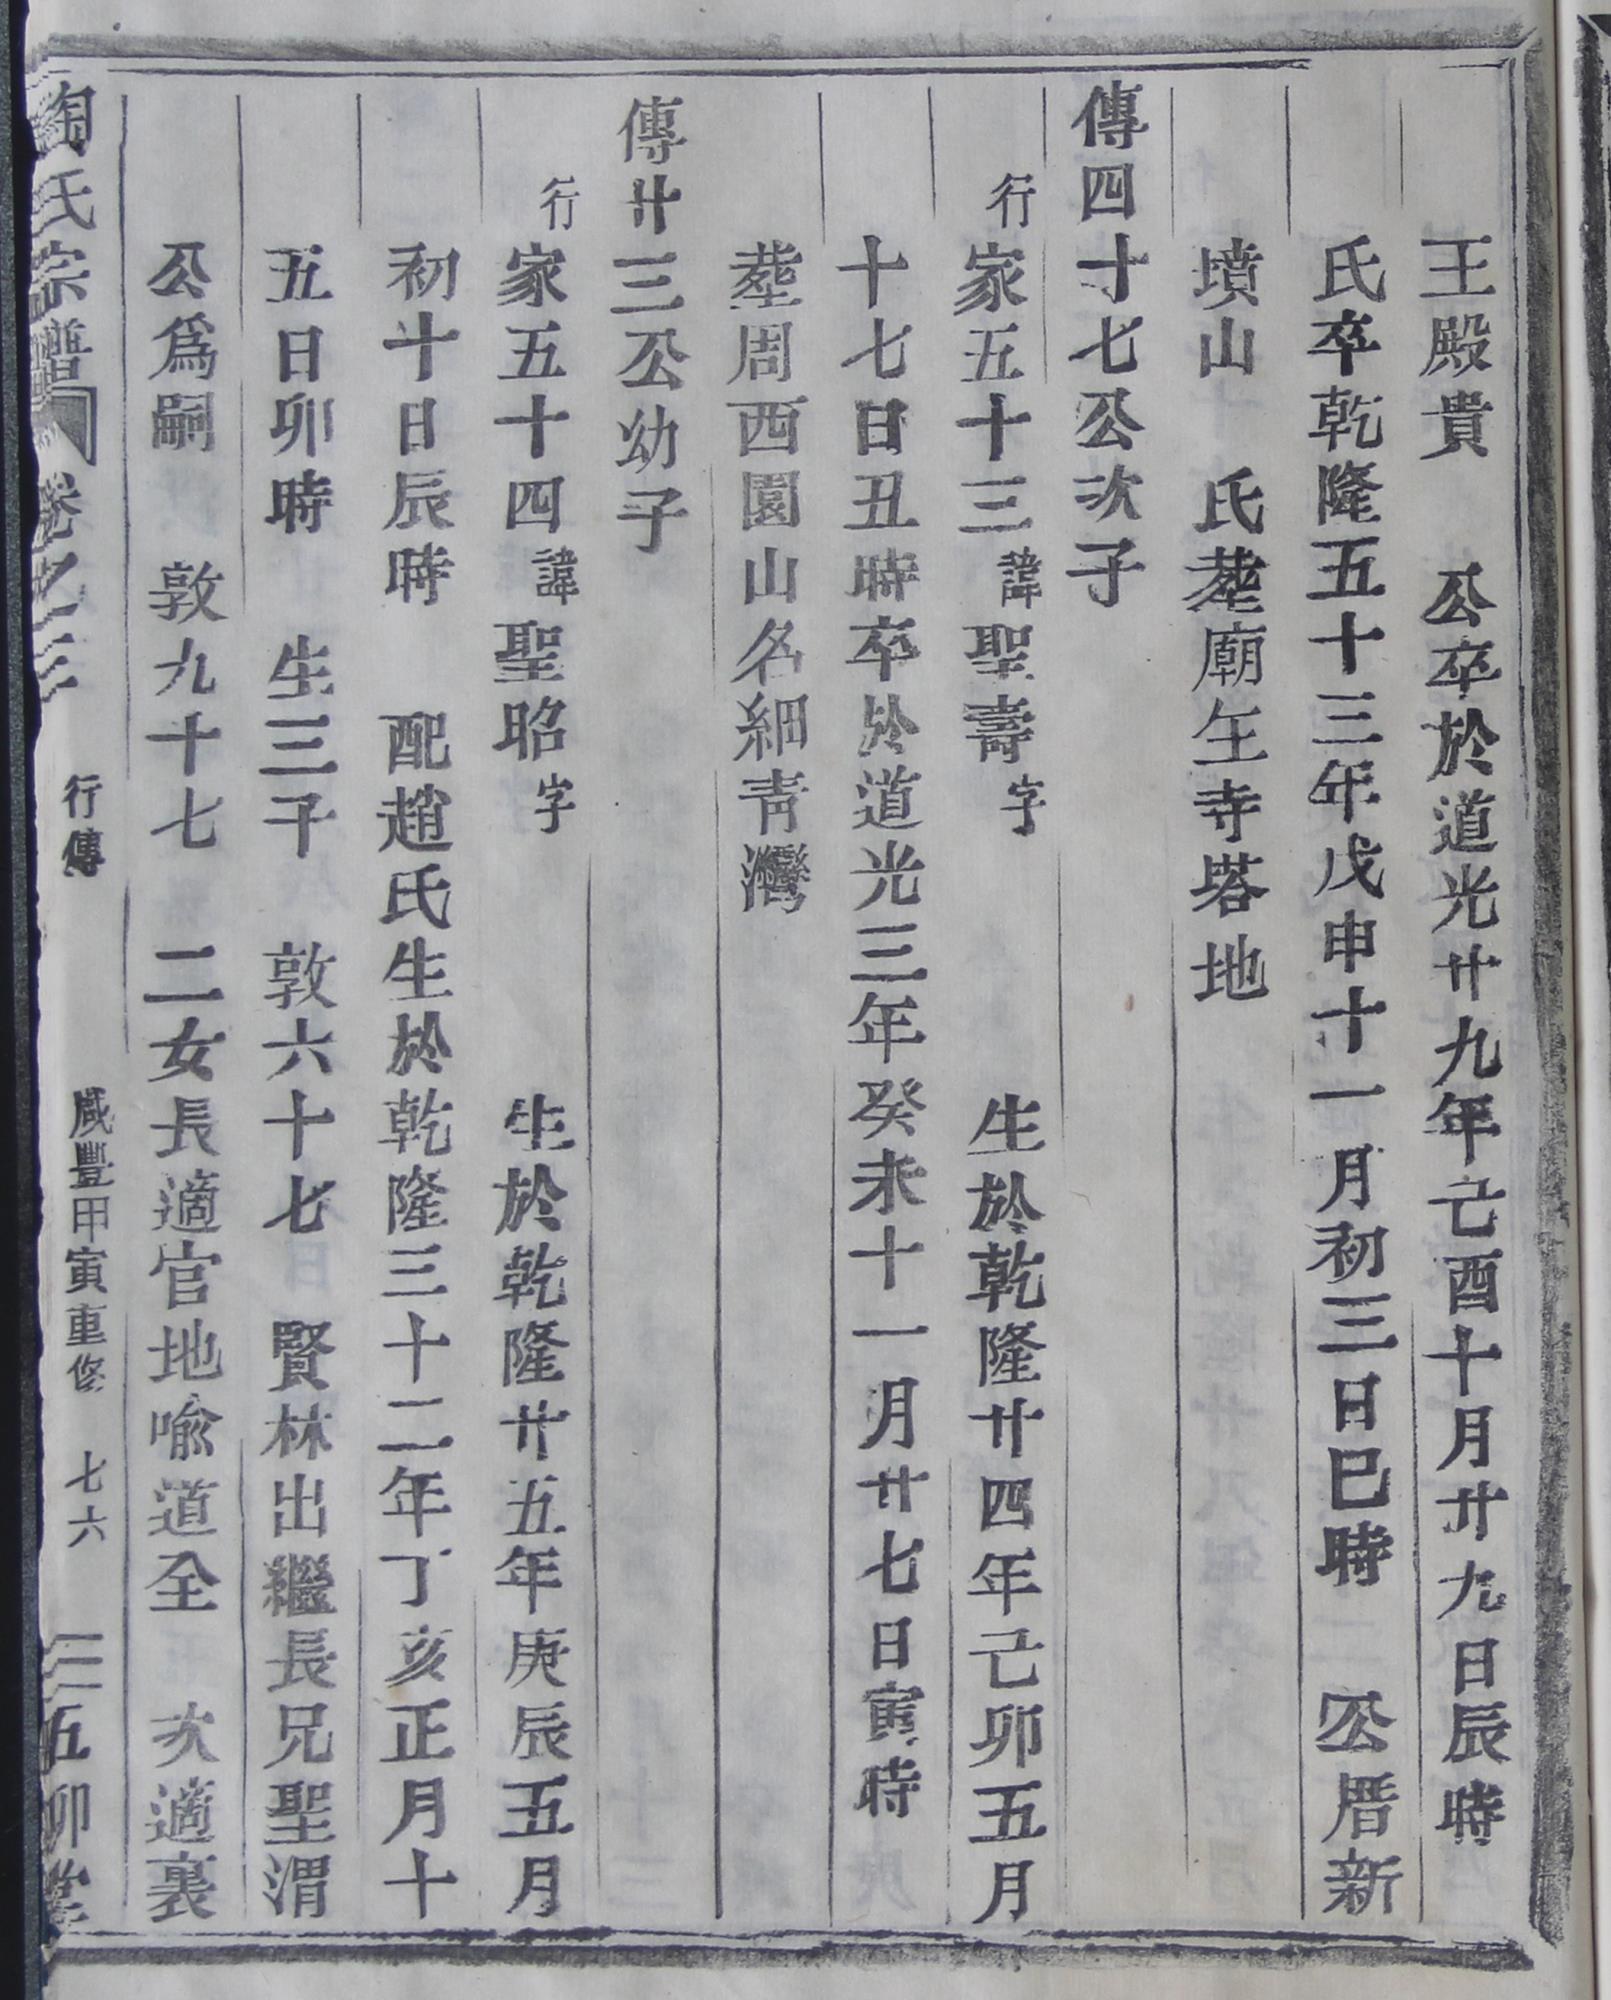 王殿貴　公卒於道光廿九年己酉十月廿九日辰時
氏卒乾隆五十三年戊申十一月初三日巳時　公厝新
墳山　氏塟廟后寺塔地
傳四十七公次子
行家五十三諱聖壽字　生於乾隆廿四年己卯五月
十七日丑時卒於道光三年癸未十一月廿七日寅時
塟周西園山名細青灣
傳廿三公幼子
行家五十四諱聖昭字　生於乾隆廿五年庚辰五月
初十日辰時　配趙氏生於乾隆三十二年丁亥正月十
五日卯時　生三子　敦六十七　賢林出繼長兄聖渭
公爲嗣　敦九十七　二女長適官地喩道全　次適裏
陶氏宗譜　卷之三　行傳　咸豐甲寅重修　七六　五柳堂